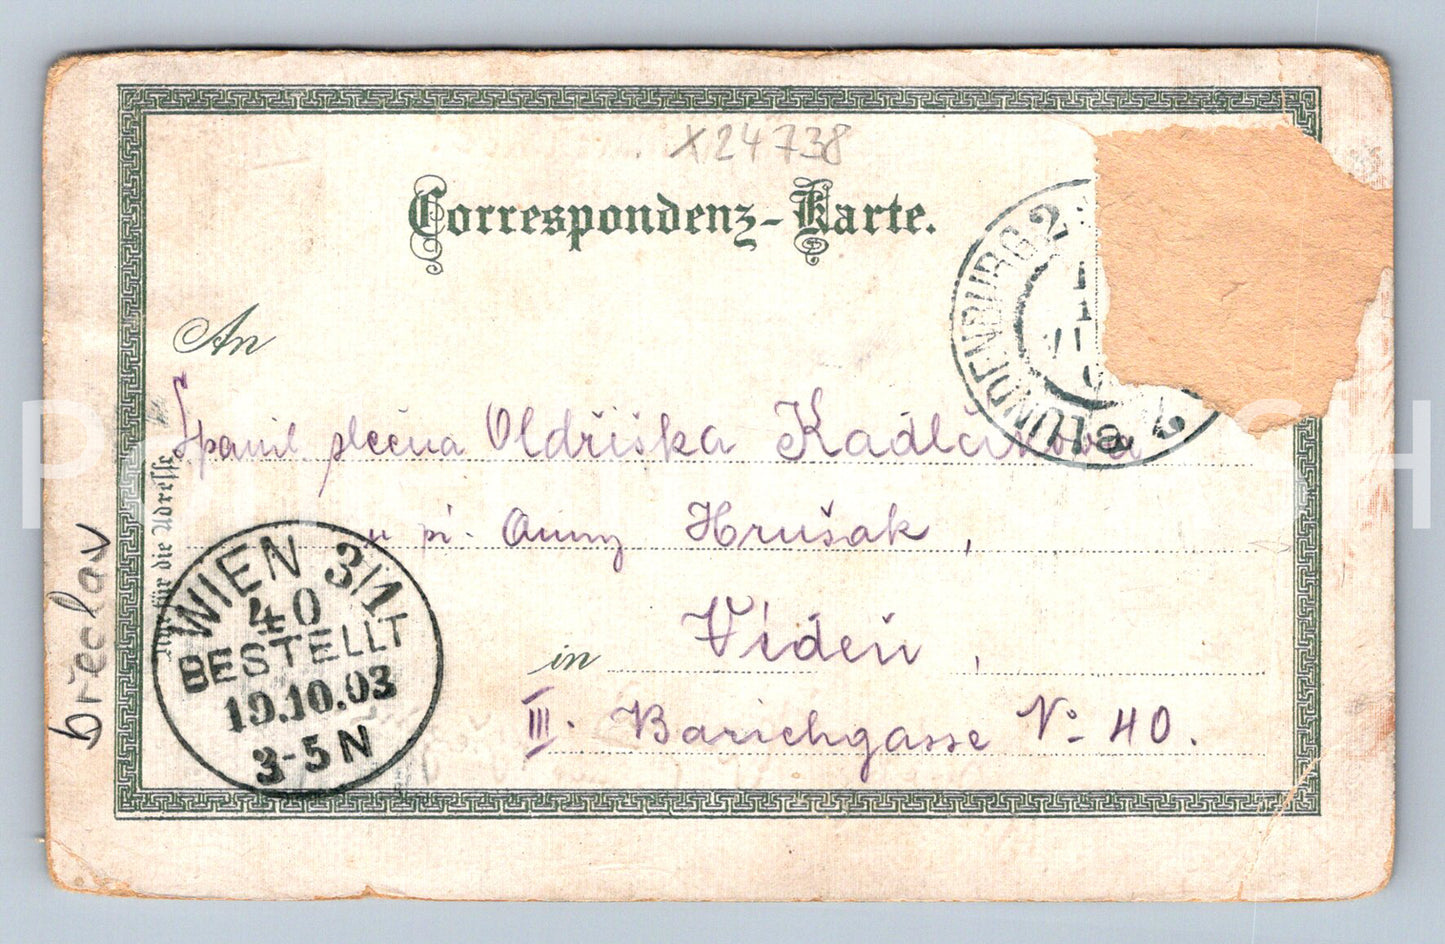 X24738
Correspondenz-Karte.
LUNDENBURG 2
An
Spanil. slečna Oldřiška Kadlčíkova
u pí. Anny Hrušak,
in Vídeň,
III. Barichgasse No 40.
Nur für die Adresse
WIEN 3/1
40
BESTELLT
19.10.03
3-5N
břeclav